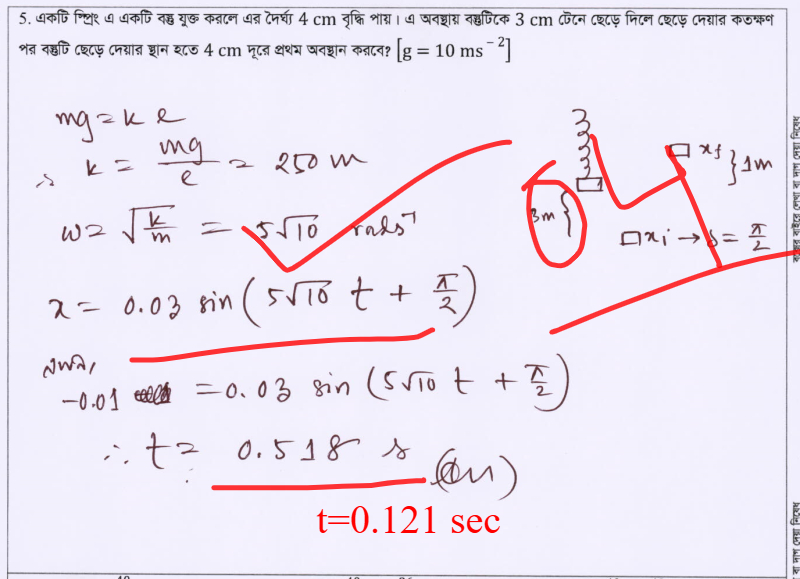 5. একটি স্প্রিং এ একটি বস্তু যুক্ত করলে এর দৈর্ঘ্য 4 cm বৃদ্ধি পায়। এ অবস্থায় বস্তুটিকে 3 cm টেনে ছেড়ে দিলে ছেড়ে দেয়ার কতক্ষণ
পর বস্তুটি ছেড়ে দেয়ার স্থান হতে 4 cm দূরে প্রথম অবস্থান করবে? [g = 10 ms⁻²]
mg = k e
∴ k = mg/e = 250 m
ω = √(k/m) = 5√10 rads⁻¹
x = 0.03 sin(5√10 t + π/2)
-0.01 = 0.03 sin(5√10 t + π/2)
∴ t = 0.518 s (Ans)
t=0.121 sec
xf } 1m
3m {
xi → δ = π/2